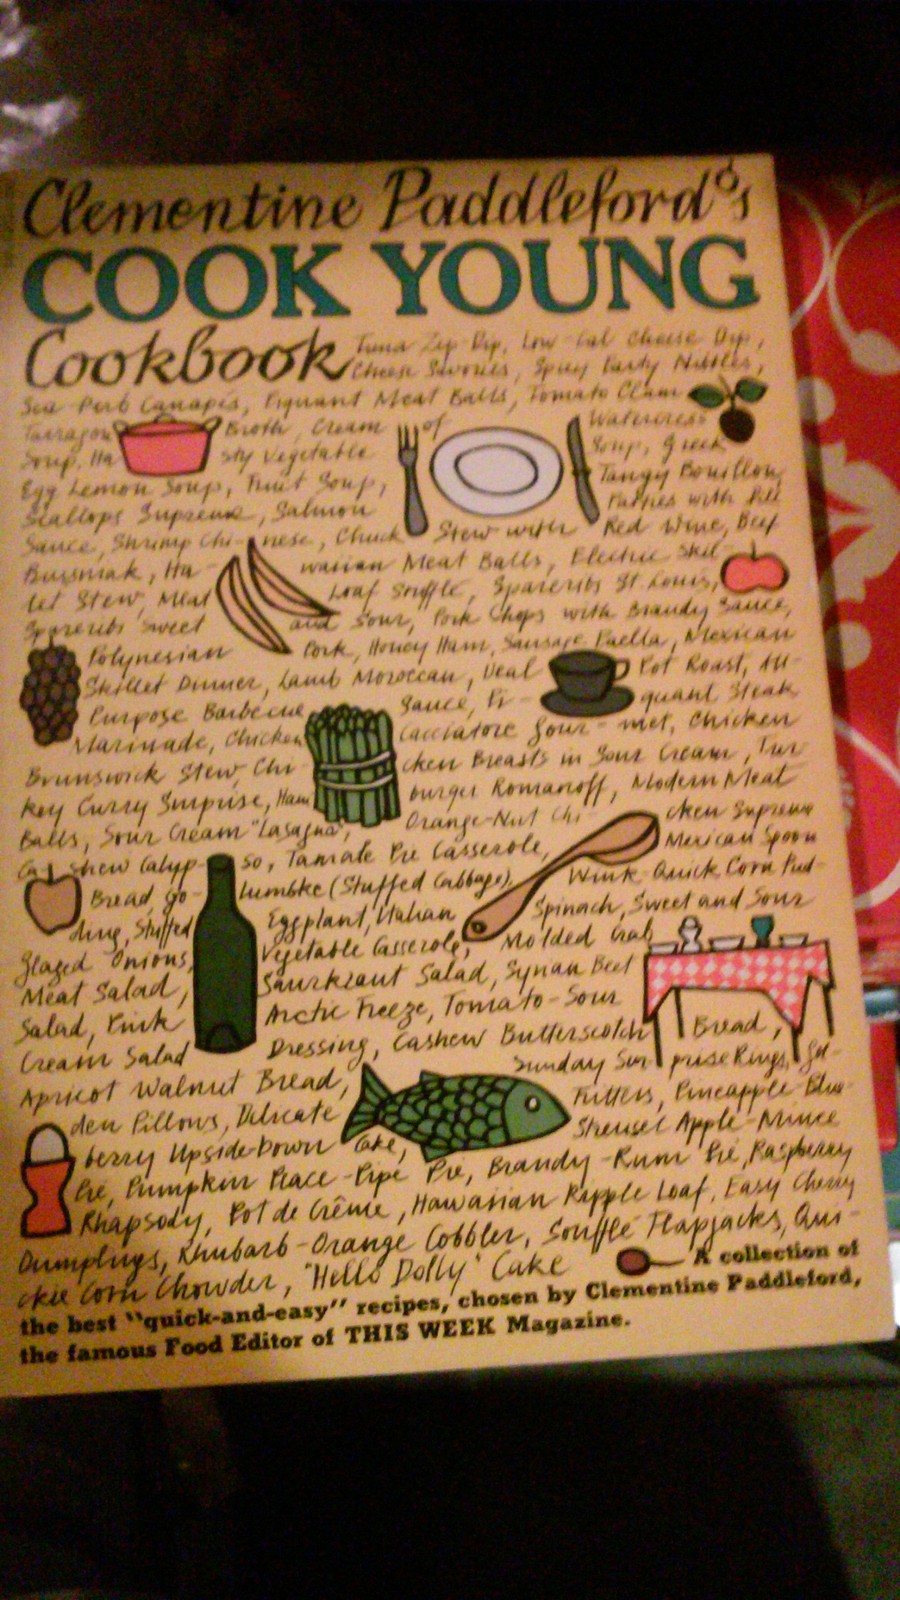 Clementine Paddleford's
COOK YOUNG
Cookbook Tuna Zip Dip, Low-Cal Cheese Dip,
Cheese Savories, Spicy Party Nibbles,
Sea-Perb Canapés, Piquant Meat Balls, Tomato Clam
Tarragon Broth, Cream of Watercress
Soup, Ha sty Vegetable Soup, Greek
Egg Lemon Soup, Fruit Soup, Tangy Bouillon,
Scallops Supreme, Salmon Patties with Dill
Sauce, Shrimp Chi-nese, Chuck Stew with Red Wine, Beef
Ha- waiian Meat Balls, Electric Skil-
let Stew, Meat Loaf Souffle, Spareribs St. Louis,
Spareribs Sweet and Sour, Pork Chops with Brandy Sauce,
Polynesian Pork, Honey Ham, Sausage Paella, Mexican
Skillet Dinner, Lamb Moroccan, Veal Pot Roast, All-
Purpose Barbecue Sauce, Pi- quant Steak
Marinade, Chicken Cacciatore Gour-met, Chicken
Brunswick Stew, Chi- cken Breasts in Sour Cream, Tur
key Curry Surprise, Ham burger Romanoff, Modern Meat
Balls, Sour Cream "Lasagna", Orange-Nut Chi- cken Supreme
Ca shew Calyp- so, Tamale Pie Casserole, Mexican Spoon
Bread, Go- lumbke (Stuffed Cabbage), Wink-Quick Corn Pud-
ding, Stuffed Eggplant, Italian Spinach, Sweet and Sour
Glazed Onions, Vegetable Casserole, Molded Crab
Meat Salad, Saurkraut Salad, Syrian Beet
Salad, Pink Arctic Freeze, Tomato-Sour
Cream Salad Dressing, Cashew Butterscotch Bread,
Apricot Walnut Bread, Sunday Sur prise Rings, Gol-
den Pillows, Delicate Fritters, Pineapple-Blue
berry Upside-Down Cake, Streusel Apple-Mince
Pie, Pumpkin Place-Pipe Pie, Brandy-Rum Pie, Raspberry
Rhapsody, Pot de Crême, Hawaiian Ripple Loaf, Easy Cherry
Dumplings, Rhubarb-Orange Cobbler, Soufflé Flapjacks, Qui-
ckie Corn Chowder, "Hello Dolly" Cake
A collection of
the best "quick-and-easy" recipes, chosen by Clementine Paddleford,
the famous Food Editor of THIS WEEK Magazine.